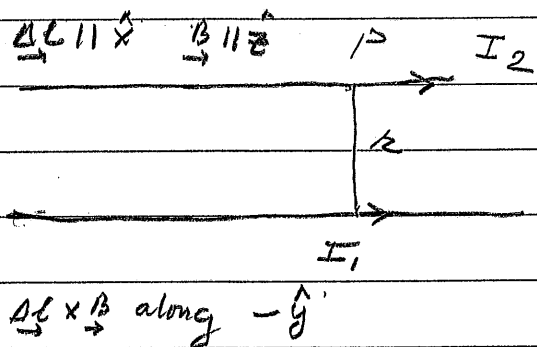 Δl || x̂ B || ẑ P I₂
r
I₁
Δl × B along − ŷ